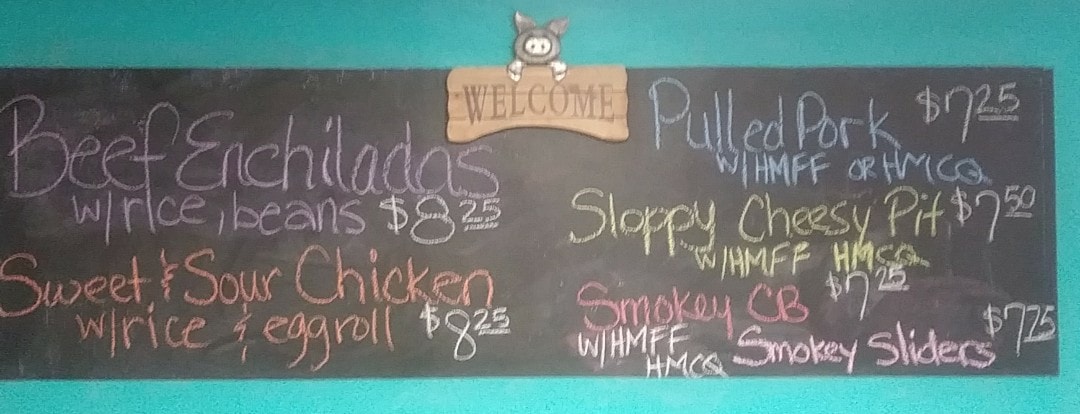 WELCOME
Beef Enchiladas
w/rice, beans $8 25
Sweet & Sour Chicken
w/rice & eggroll $8 25
Pulled Pork $7 25
W/HMFF OR HMCQ
Sloppy Cheesy Pit $7 50
W/HMFF HMCQ
Smokey CB $7 25
W/HMFF
HMCQ
Smokey Sliders $7 25